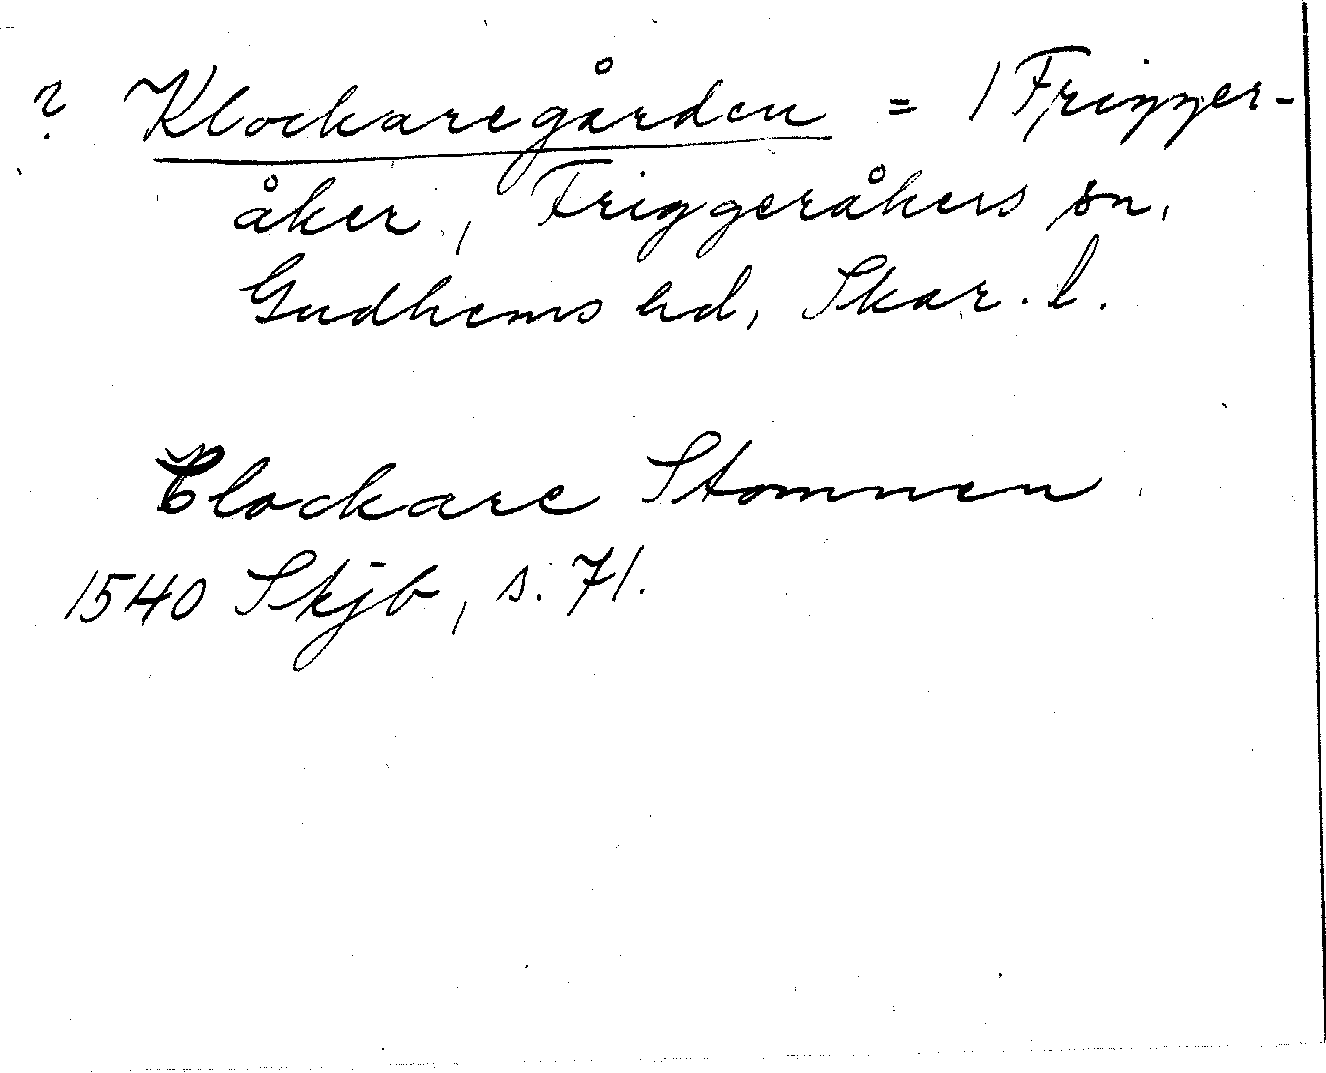 ? Klockaregården = 1 Frigger-
åker, Friggeråkers sn,
Gudhems hd, Skar. l.
Clockare Stomnen
1540 Skjb, s. 71.